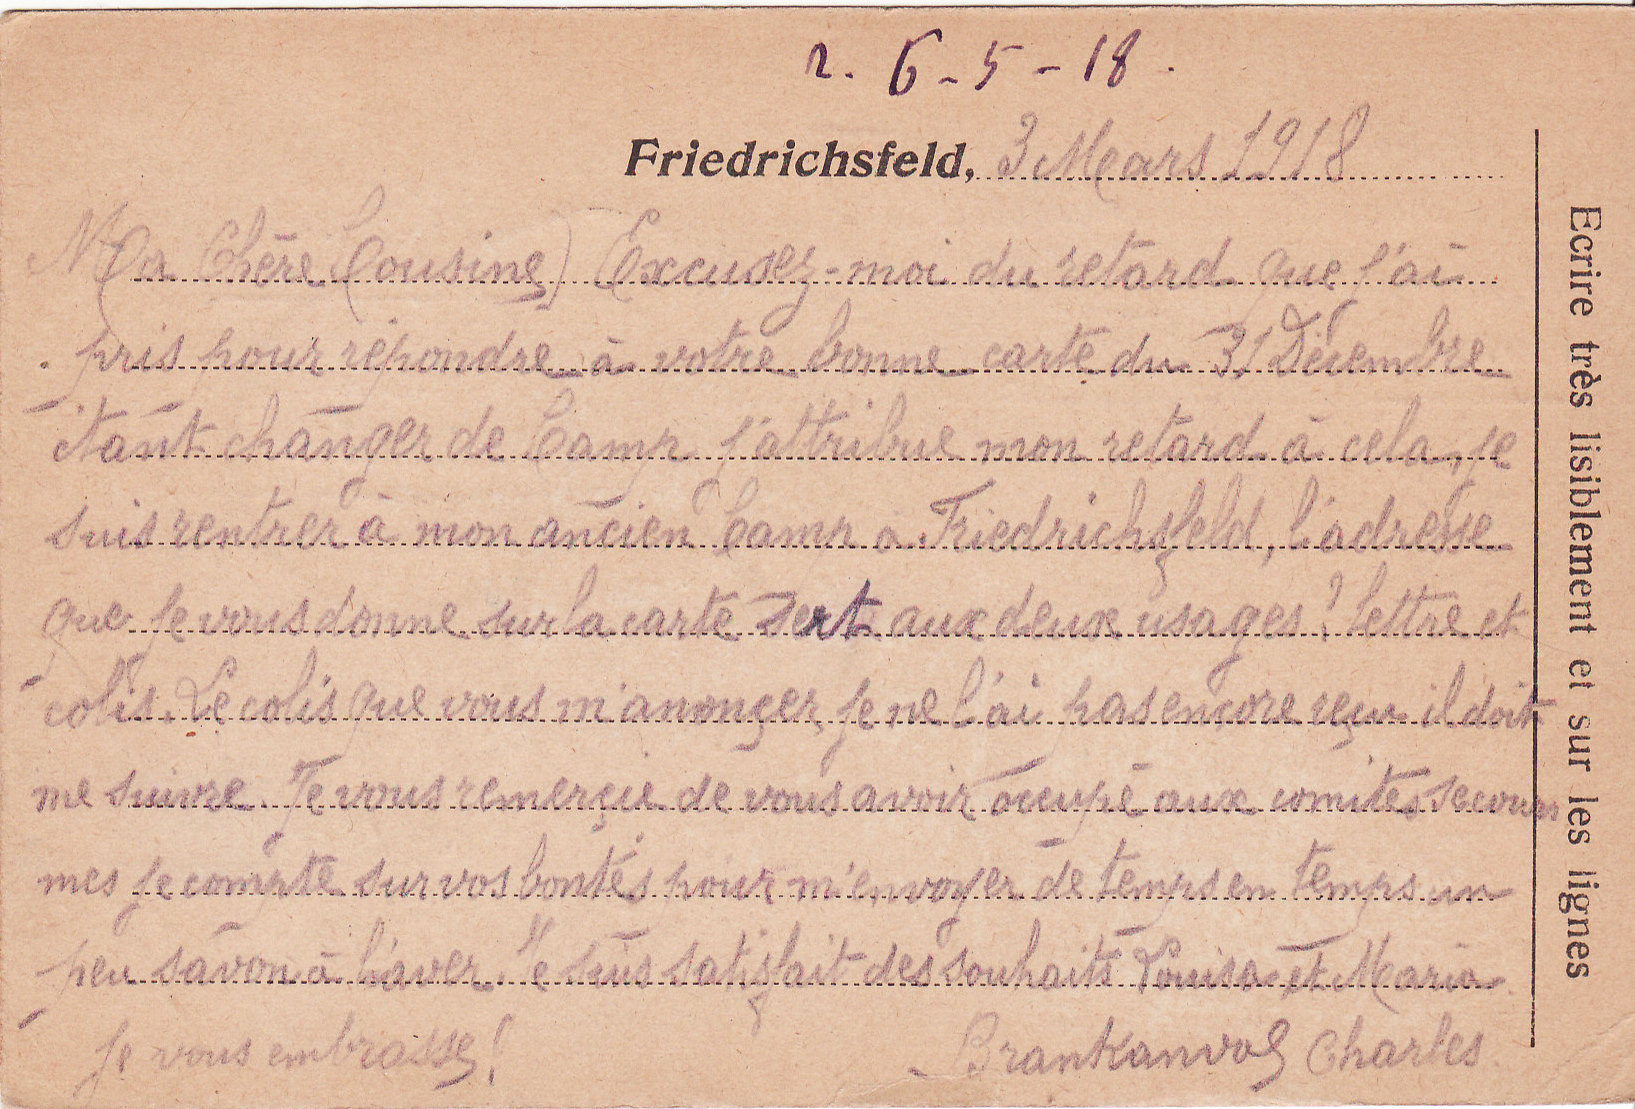 r. 6-5-18.
Friedrichsfeld, 3 Mars 1918
Ma Chère Cousine) Excusez-moi du retard que j'ai
pris pour répondre à votre bonne carte du 31 Décembre
étant changer de Camp j'attribue mon retard à cela, je
suis rentrer à mon ancien Camp à Friedrichsfeld, l'adresse
que je vous donne sur la carte sert aux deux usages! lettre et
colis. Le colis que vous m'anonçer, je ne l'ai pas encore reçu il doit
me suivre. Je vous remerçie de vous avoir occupé aux comités secours
mes je compte sur vos bontés pour m'envoyer de temps en temps un
peu savon à laver. Je suis satisfait des souhaits Louisa et Maria
je vous embrasse! Brankanvol Charles.
Ecrire très lisiblement et sur les lignes